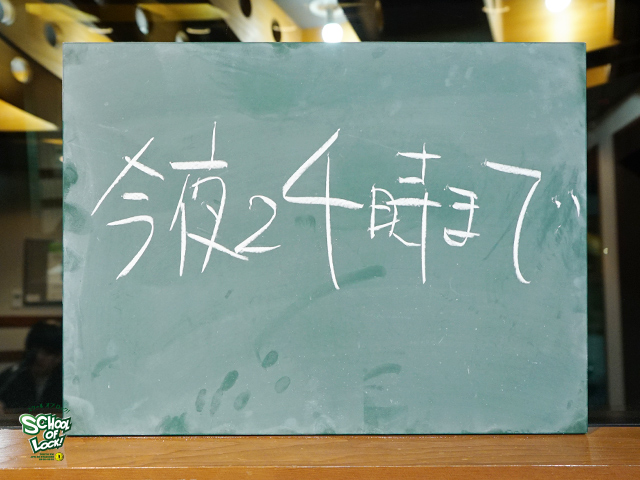 今夜24時まで
SCHOOL
OF
LOCK!